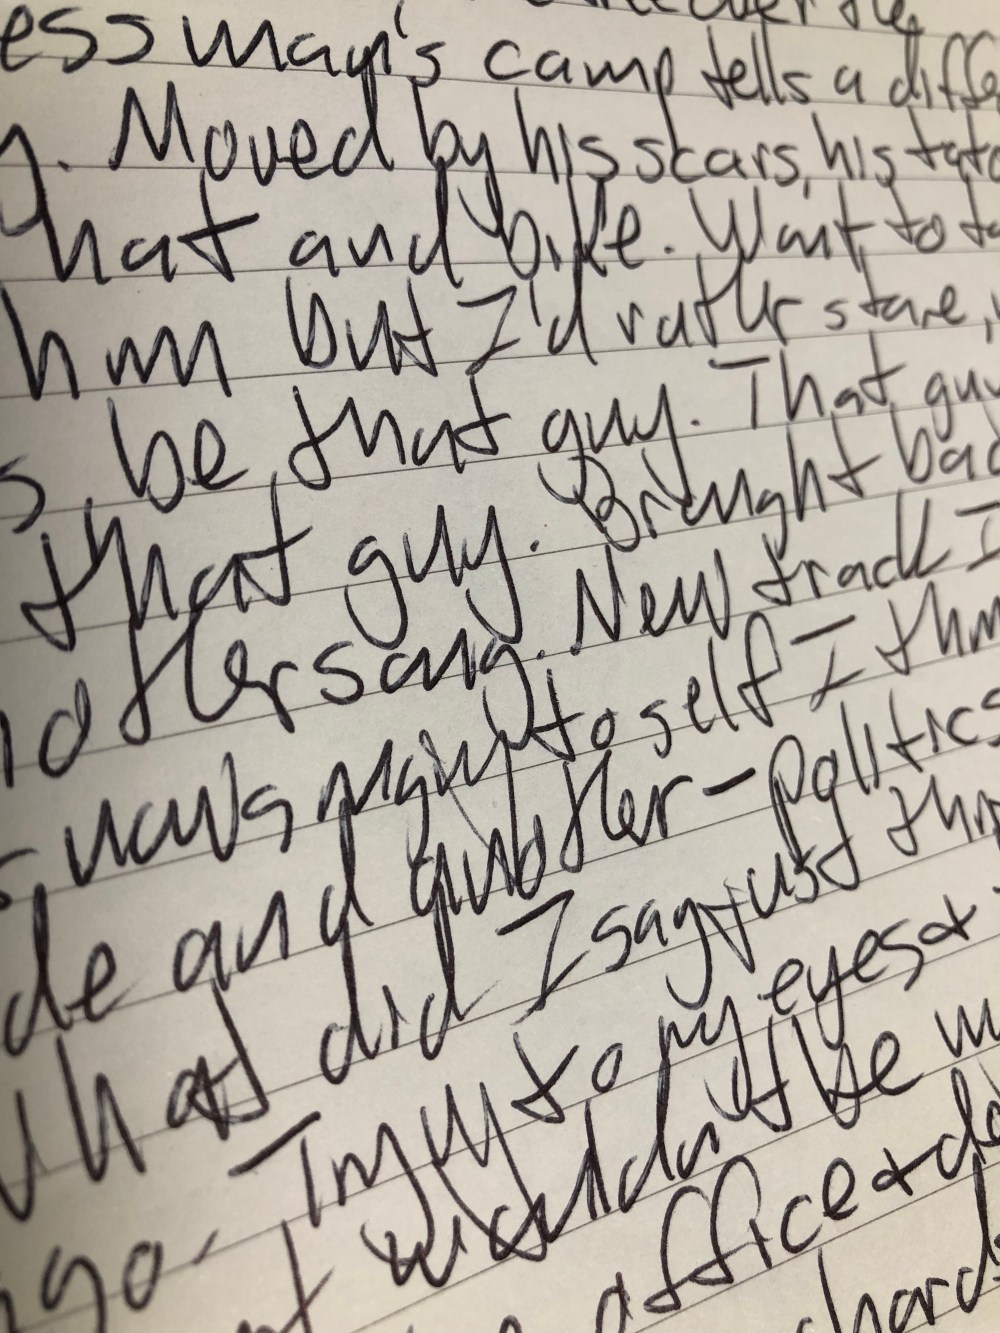 over the
ess man's camp tells a diffe
y. Moved by his scars, his tato
hat and bike. Want to ta
him but I'd rather stare,
s, be that guy. That guy
that guy. Brought bac
nother song. New track I
to self I thin
de and another - politics
what did I say just thr
go. Imy to my eyes &
t wouldn't be m
office & do
hard